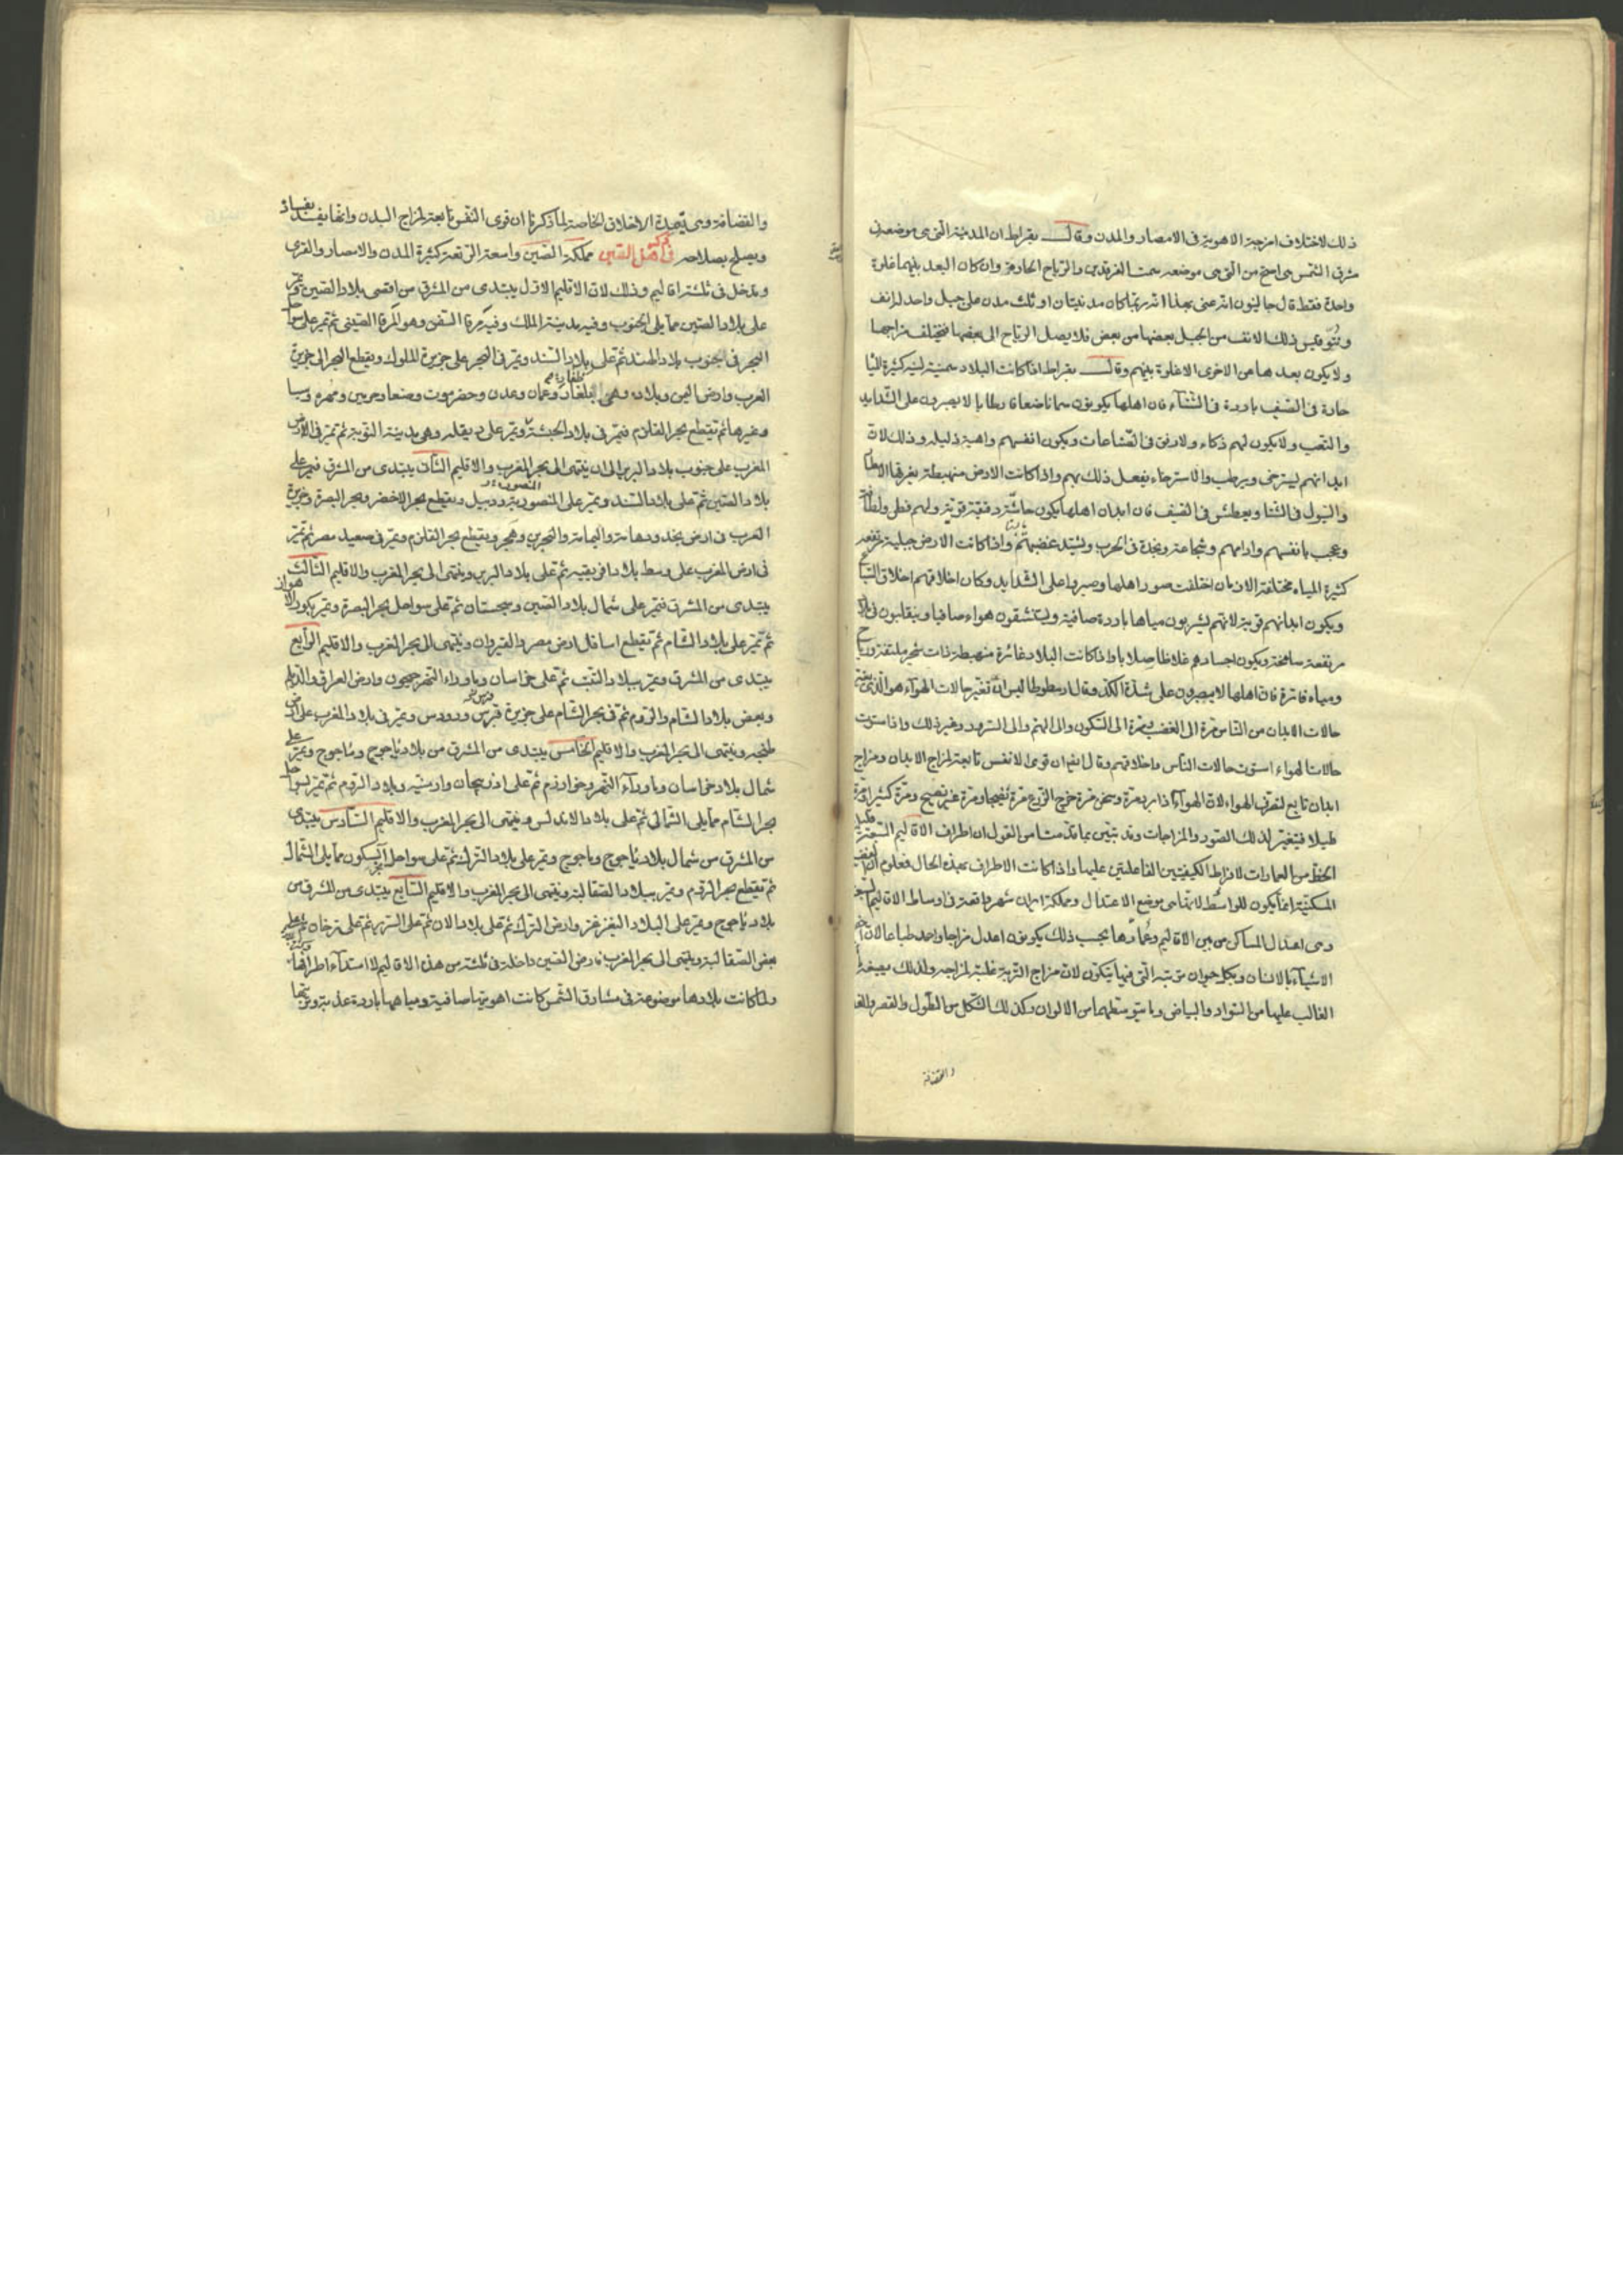 ذلك لاختلاف امزجة الاهوية فى الامصار والمدن وقال بقراط ان المدينة التى هى موضعه فى
مشرق الشمس هى اصح من التى هى موضعه سمت الفرقدين والرياح الحارة وان كان البعد بينهما غلوة
واحدة فقط قال جالينوس انه عنى بهذا انه ربما كان مدينتان او ثلث مدن على جبل واحد لانف
ذلك الانف من الجبل بعضها من بعض فلا يصل الرياح الى بعضها فيختلف مزاجها
ولا يكون بعدها من الاخرى الا غلوة بينهم وقال بقراط اذا كانت البلاد سمينة لينة كثيرة المياه
حارة فى الصيف باردة فى الشتاء فان اهلها يكونون سمانا ضعافا رطابا لا يصبرون على الشدايد
والتعب ولا يكون لهم ذكاء ولا رفق فى الصناعات ويكون انفسهم واهية ذليله وذلك لان
ابدانهم ليسترخى ويرطب والاسترخاء يفعل ذلك بهم واذا كانت الارض منهبطة يغرقها الامطار
والسيول فى الشتا ويعطش فى الصيف فان ابدان اهلها يكون دقيقة قوية ولهم
وعجب بانفسهم وارائهم وشجاعة ونجدة فى الحرب ويشتد غضبهم واذا كانت الارض جبلية مرتفعه
كثيرة المياه مختلفة الازمان اختلفت صور اهلها وصبروا على الشدايد وكان اخلاقهم اخلاق السباع
ويكون ابدانهم قوية لانهم يشربون مياها باردة صافية ويستنشقون هواء صافيا ويتقلبون فى
مرتفعة سامخة ويكون اجسادهم غلاظا صلابا واذا كانت البلاد غائرة منهبطة ذات شجر ملتفة ورياح
ومياه فاترة فان اهلها لا يصبرون على شدة الكد وقال ارسطوطاليس ان تغير حالات الهواء هو الذى يغير
حالات الابدان من الناس مرة الى الغضب ومرة الى السكون والى الهم والى السرور وغير ذلك واذا استوت
حالات الهواء استوت حالات الناس واخلاقهم وقال ايضا ان قوى الانفس تابعة لمزاج الابدان ومزاج
ابدان تابع لتصرف الهواء لان الهواء اذا برد مرة وسخن مرة خرج الزرع مرة نضيجا ومرة غير نضيج ومرة كثيرا ومرة
قليلا فيتغير لذلك الصور والمزاجات وقد تبين بما قدمنا من القول ان اطراف الاقاليم السبعة قليلة
الحظ من العمارات لافراط الكيفيتين الفاعلتين عليها واذا كانت الاطراف بهذه الحال فمعلوم ان
المسكنية انما يكون للواسط لانها هى موضع الاعتدال ومملكة ايران شهر واقعة فى اوساط الاقاليم السبعة
وهى اعدل المساكن من بين الاقاليم وعمارها بحسب ذلك يكونون اعدل مزاجا واحد طباعا لان
الاشياء بالانسان وبكل حيوان تربته التى فيها يتكون لان مزاج التربة غلبة لمزاجه ولذلك يصيغه
الغالب عليها من السواد والبياض وما يتوسطهما من الالوان وكذلك الشكل من الطول والقصر
والقضافة
والقضافة وهى الاخلاق الخاصة لما ذكرنا ان قوى النفس تابعة لمزاج البدن وانها يفسد بفساده
ويصلح بصلاحه ذكر اهل الصين مملكة الصين واسعة الرقعة كثيرة المدن والامصار والقرى
ويدخل فى ثلثة اقاليم وذلك لان الاقليم الاول يبتدى من المشرق من اقصى بلاد الصين ويمر
على بلاد الصين مما يلى الجنوب وفيه مدينة الملك وفيه مرفا السفن وهو المرفا الصينى ثم يمر على سواحل
البحر فى الجنوب بلاد الهند ثم على بلاد السند ويمر فى البحر على جزيرة الملوك ويقطع البحر الى جزيرة
العرب وارض اليمن وبلاده وهى ظفار وعمان وعدن وحضرموت وصنعا وجربين ومهره وسبا
وغيرها ثم يقطع بحر القلزم فيمر فى بلاد الحبشة ويمر على دنقله وهى مدينة النوبة ثم يمر فى الارض
المغرب على جنوب بلاد البربر الى ان ينتهى الى بحر المغرب والاقليم الثانى يبتدى من المشرق فيمر على
بلاد الصين ثم على بلاد السند ويمر على المنصورة ودبيل ويقطع بحر الاخضر وبحر البصرة وجزيرة
العرب فى ارض نجد وتهامة واليمامة والبحرين وهجر ويقطع بحر القلزم ويمر فى صعيد مصر ثم يمر
فى ارض المغرب على وسط بلاد افريقيه ثم على بلاد البربر وينتهى الى بحر المغرب والاقليم الثالث
يبتدى من المشرق فيمر على شمال بلاد الصين وسجستان ثم على سواحل بحر البصرة ويمر بكور الاهواز
ثم يمر على بلاد الشام ثم يقطع اسافل ارض مصر والقيروان وينتهى الى بحر المغرب والاقليم الرابع
يبتدى من المشرق ويمر ببلاد التبت ثم على خراسان وماوراء النهر جيحون وارض العراق والديلم
وبعض بلاد الشام والروم ثم فى بحر الشام على جزيرة قبرس ورودس ويمر فى بلاد المغرب على ارض
طنجه وينتهى الى بحر المغرب والاقليم الخامس يبتدى من المشرق من بلاد ياجوج وماجوج ويمر على
شمال بلاد خراسان وماوراء النهر وخوارزم ثم على اذربيجان وارمنيه وبلاد الروم ثم يمر لسواحل
بحر الشام مما يلى الشمالى ثم على بلاد الاندلس وينتهى الى بحر المغرب والاقليم السادس يبتدى
من المشرق من شمال بلاد ياجوج وماجوج ويمر على بلاد الترك ثم على سواحل آبسكون مما يلى الشمال
ثم يقطع بحر الروم ويمر ببلاد الصقالبة وينتهى الى بحر المغرب والاقليم السابع يبتدى من المشرق من
بلاد ياجوج ويمر على البلاد التغزغز وارض الترك ثم على بلاد الان ثم على السرير ثم على برجان ثم على
بعض الصقالبة وينتهى الى بحر المغرب فارض الصين داخلة فى ثلثة من هذه الاقاليم لامتداد اطرافها
ولما كانت بلادها موضوعة فى مشارق الشمس كانت اهويتها صافية ومياهها باردة عذبة وتربتها